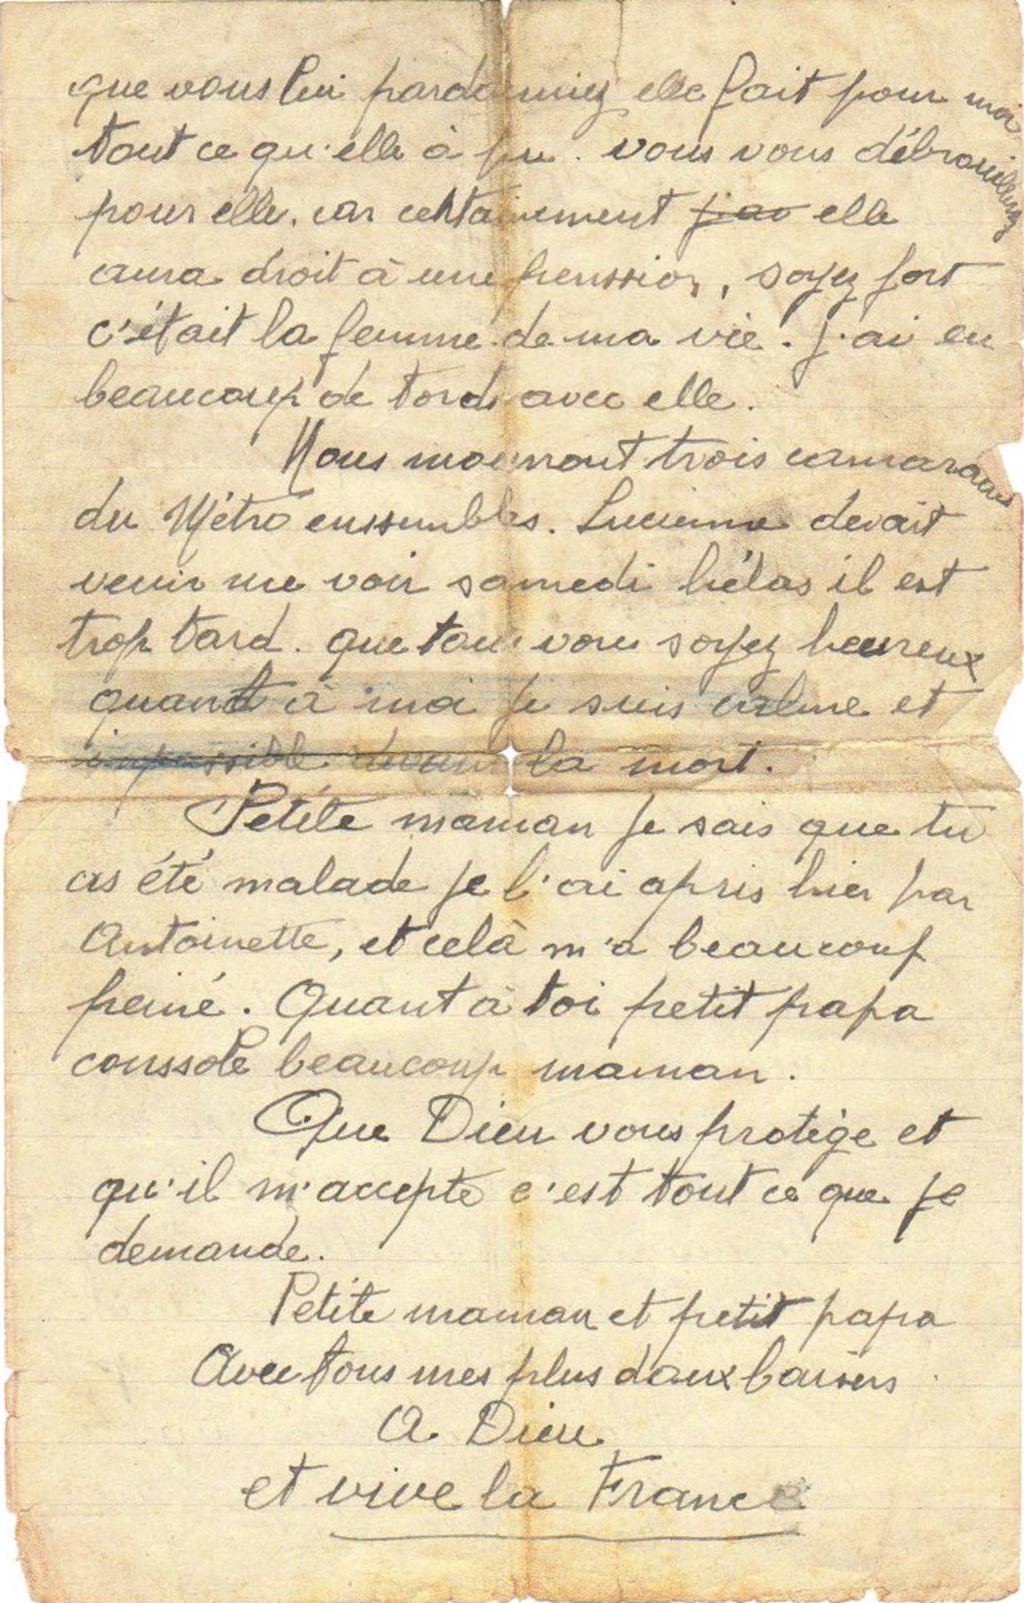 que vous lui pardonniez elle fait pour moi
tout ce qu'elle à pu. vous vous débrouillerez
pour elle. car certainement j'ai elle
aura droit à une penssion, soyez fort
c'était la femme de ma vie. j'ai eu
beaucoup de tords avec elle.
Nous mourront trois camarades
du Métro enssembles. Lucienne devait
venir me voir samedi hélas il est
trop tard. que tous vous soyez heureux
quant à moi je suis calme et
impassible devant la mort.
Petite maman je sais que tu
as été malade je l'ai apris hier par
Antoinette, et celà m'a beaucoup
peiné. Quant à toi petit papa
conssole beaucoup maman.
Que Dieu vous protège et
qu'il m'accepte c'est tout ce que je
demande.
Petite maman et petit papa
Avec tous mes plus doux baisers
A Dieu
et vive la France